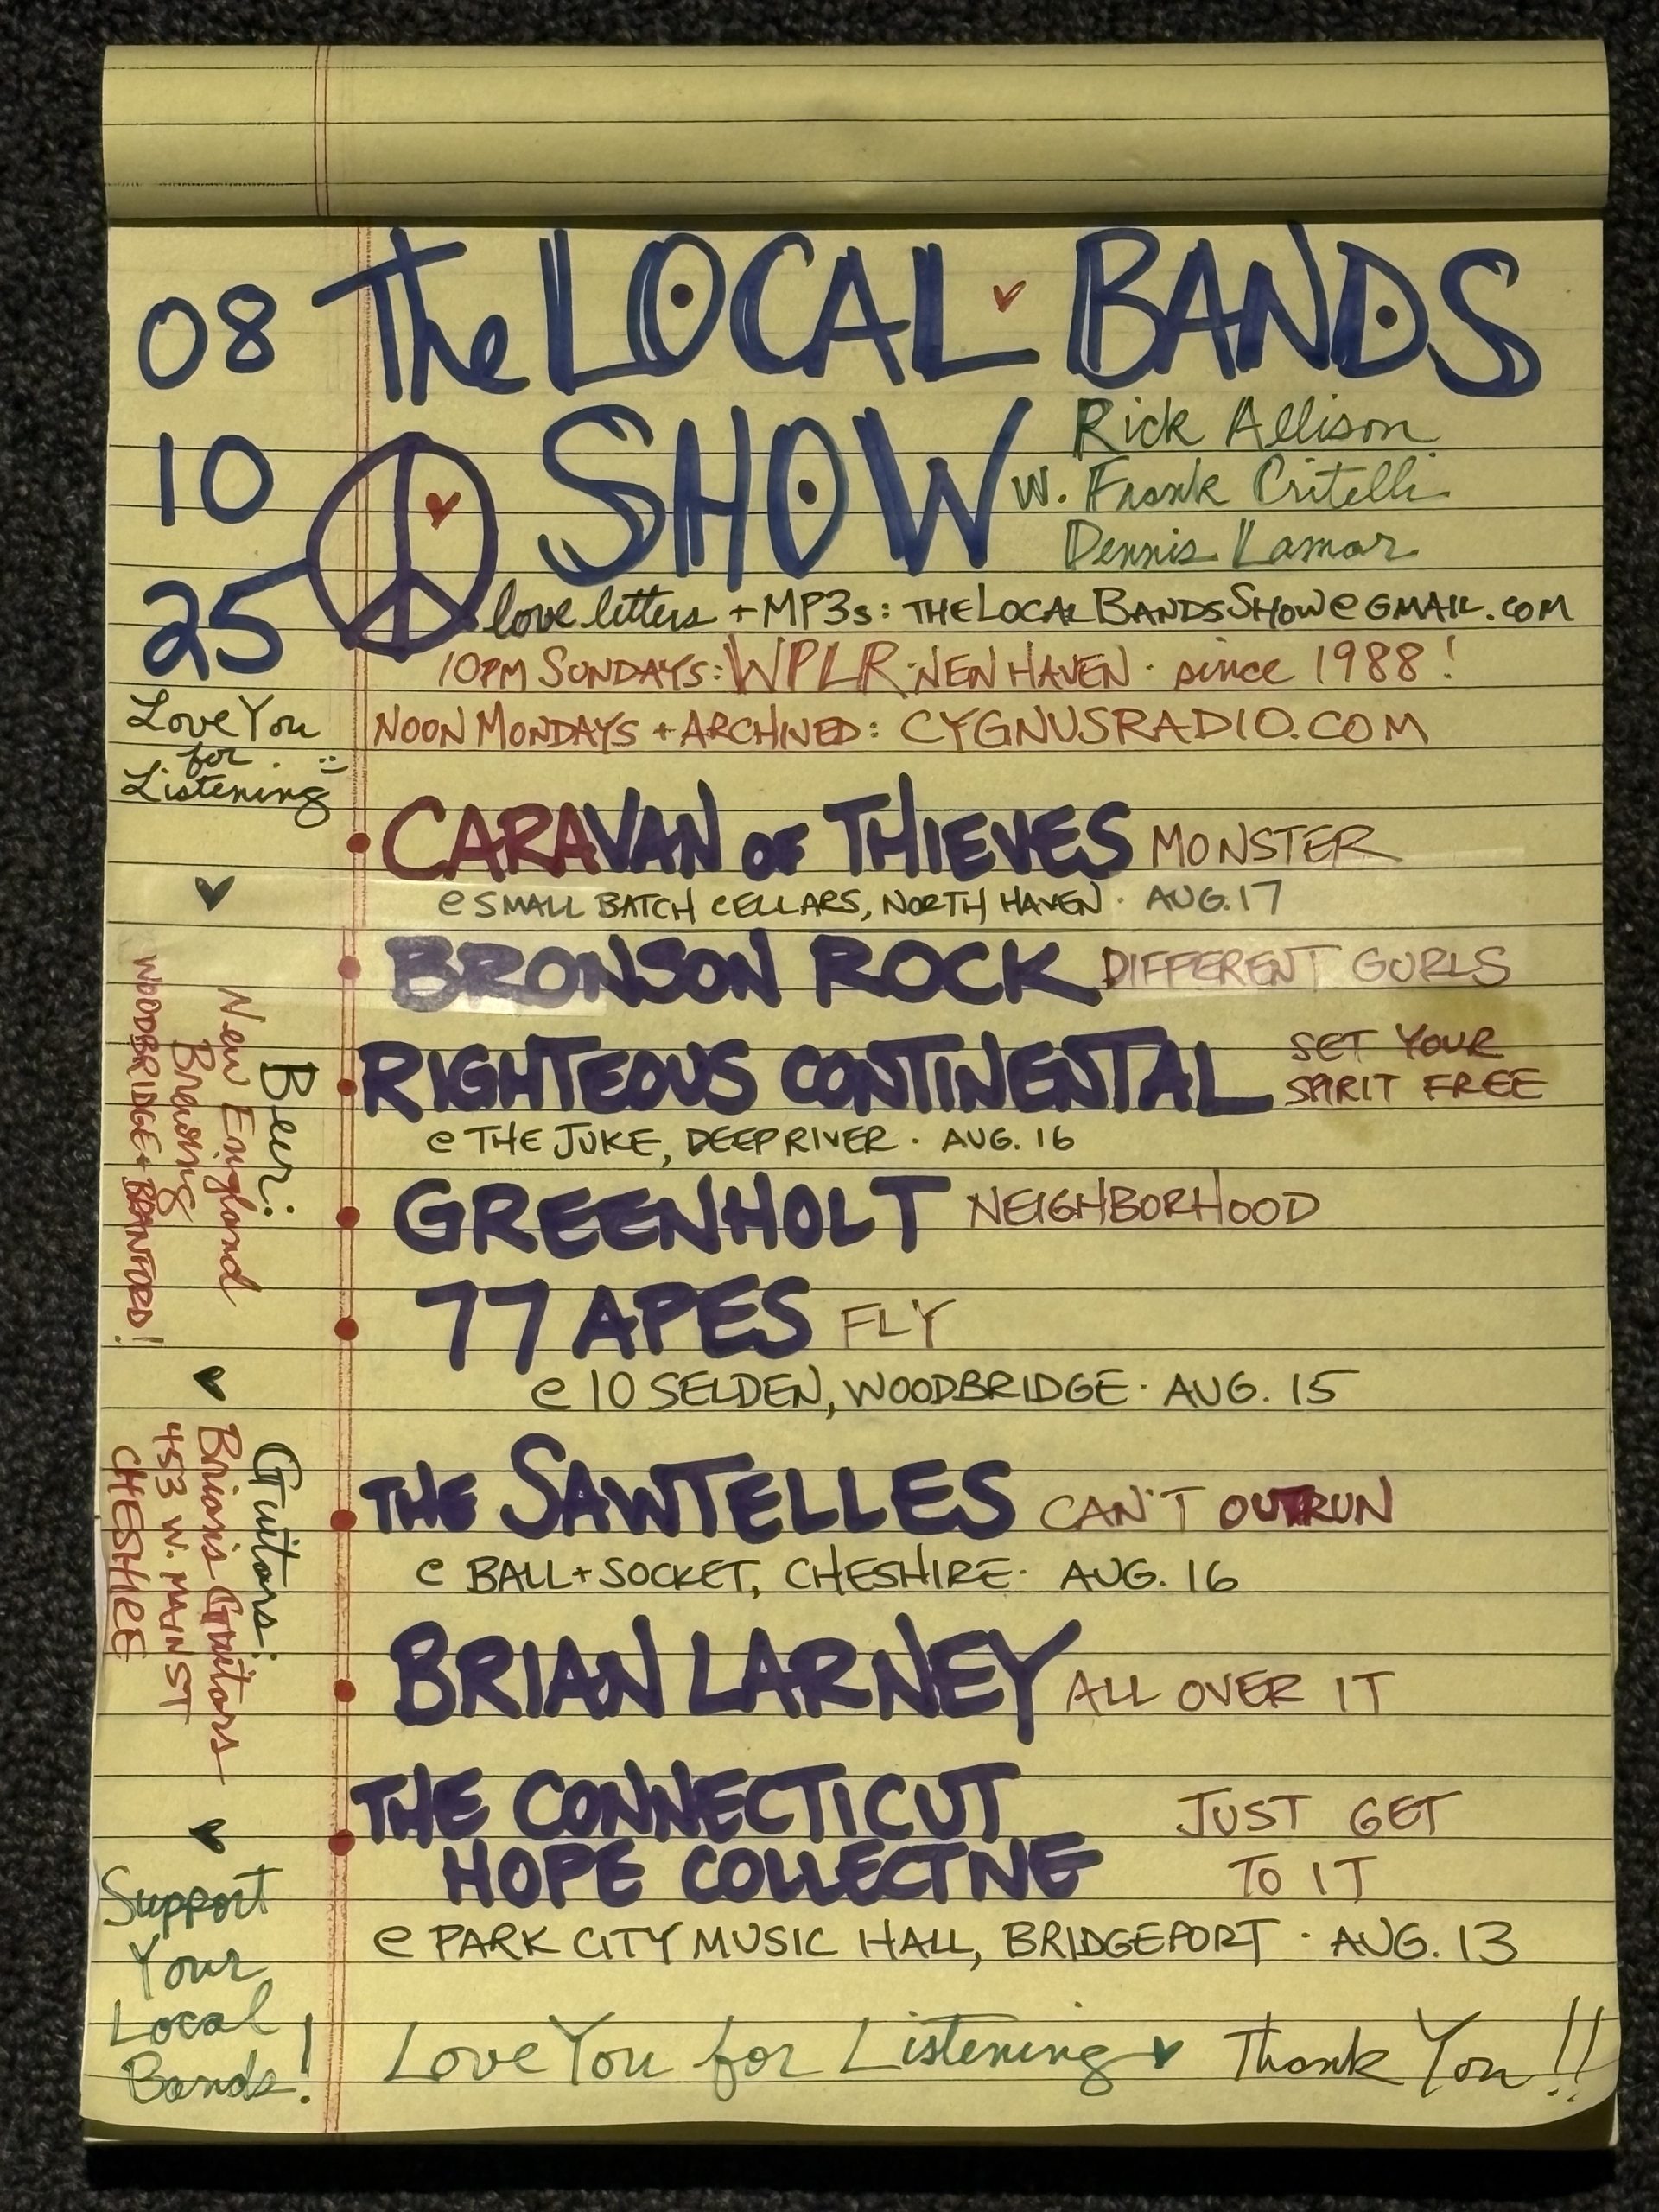 08
10
25
The LOCAL BANDS
SHOW
Rick Allison
w. Frank Critelli
Dennis Lamar
love letters + MP3s: THELOCALBANDSSHOW@GMAIL.COM
10PM SUNDAYS: WPLR · NEW HAVEN · since 1988!
NOON MONDAYS + ARCHIVED: CYGNUSRADIO.COM
Love You
for
Listening
CARAVAN OF THIEVES MONSTER
@ SMALL BATCH CELLARS, NORTH HAVEN · AUG. 17
BRONSON ROCK DIFFERENT GURLS
RIGHTEOUS CONTINENTAL SET YOUR
SPIRIT FREE
@ THE JUKE, DEEP RIVER · AUG. 16
GREENHOLT NEIGHBORHOOD
77 APES FLY
@ 10 SELDEN, WOODBRIDGE · AUG. 15
THE SAWTELLES CAN'T OUTRUN
@ BALL + SOCKET, CHESHIRE · AUG. 16
BRIAN LARNEY ALL OVER IT
THE CONNECTICUT
HOPE COLLECTIVE
JUST GET
TO IT
@ PARK CITY MUSIC HALL, BRIDGEPORT · AUG. 13
Beer:
New England
Brewing
WOODBRIDGE + BRANFORD!
Guitars:
Brian's Guitars
453 W. MAIN ST
CHESHIRE
Support
Your
Local
Bands!
Love You for Listening Thank You!!